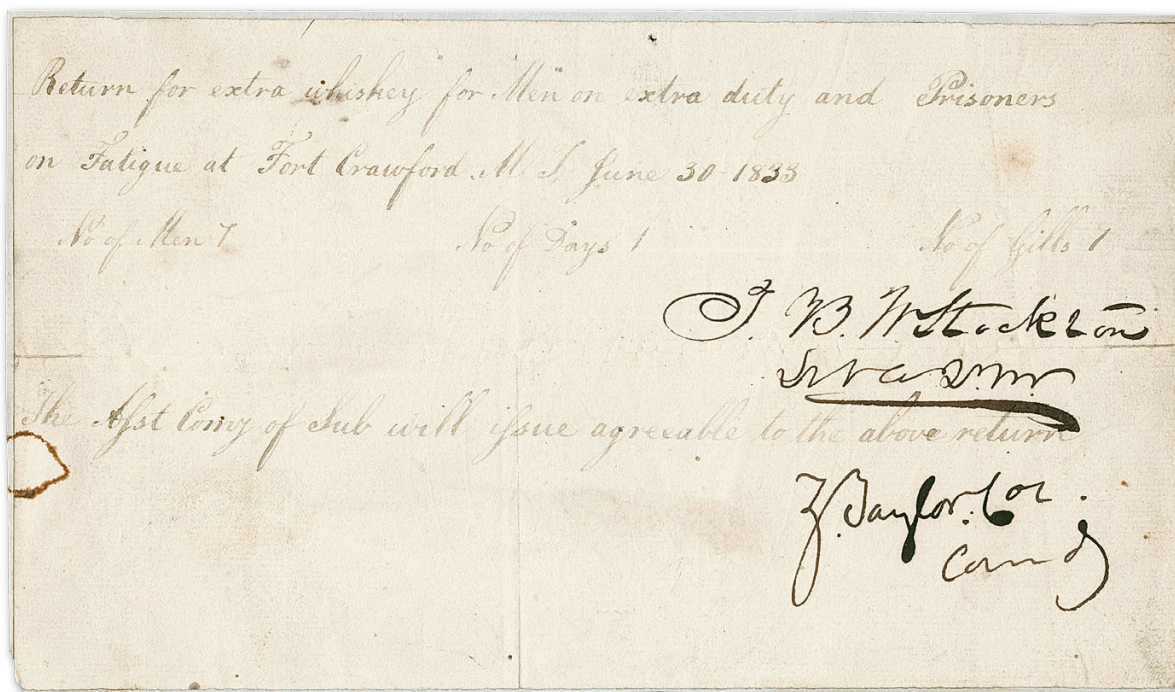 Return for extra whiskey for Men on extra duty and Prisoners
on Fatigue at Fort Crawford M. T. June 30 1833
No of Men 7 No of Days 1 No of Gills 7
J. B. W. Stockton
The Asst Comy of Sub will issue agreeable to the above return
Z. Taylor. Col.
Comdg